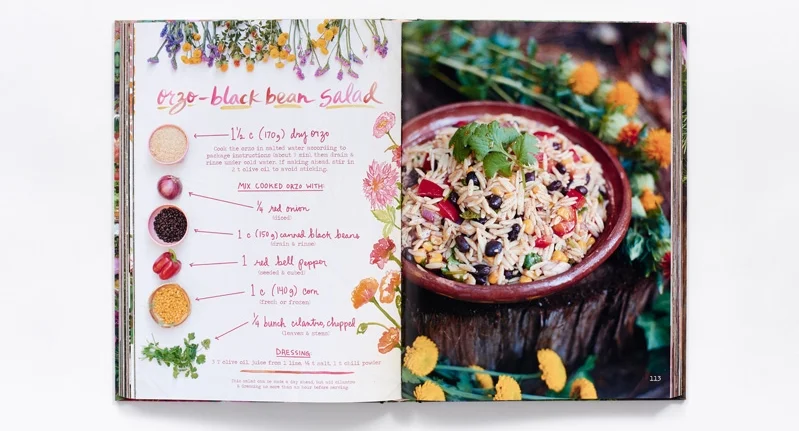 orzo-black bean salad
1½ c (170g) dry orzo
Cook the orzo in salted water according to
package instructions (about 7 min) then drain &
rinse under cold water. If making ahead stir in
2 t olive oil to avoid sticking.
MIX COOKED ORZO WITH:
¼ red onion
(diced)
1 c (150g) canned black beans
(drain & rinse)
1 red bell pepper
(seeded & cubed)
1 c (140g) corn
(fresh or frozen)
¼ bunch cilantro, chopped
(leaves & stems)
DRESSING
olive oil, juice from 1 lime, salt, chili powder
This salad can be made a day ahead but add cilantro
& dressing no more than an hour before serving
113